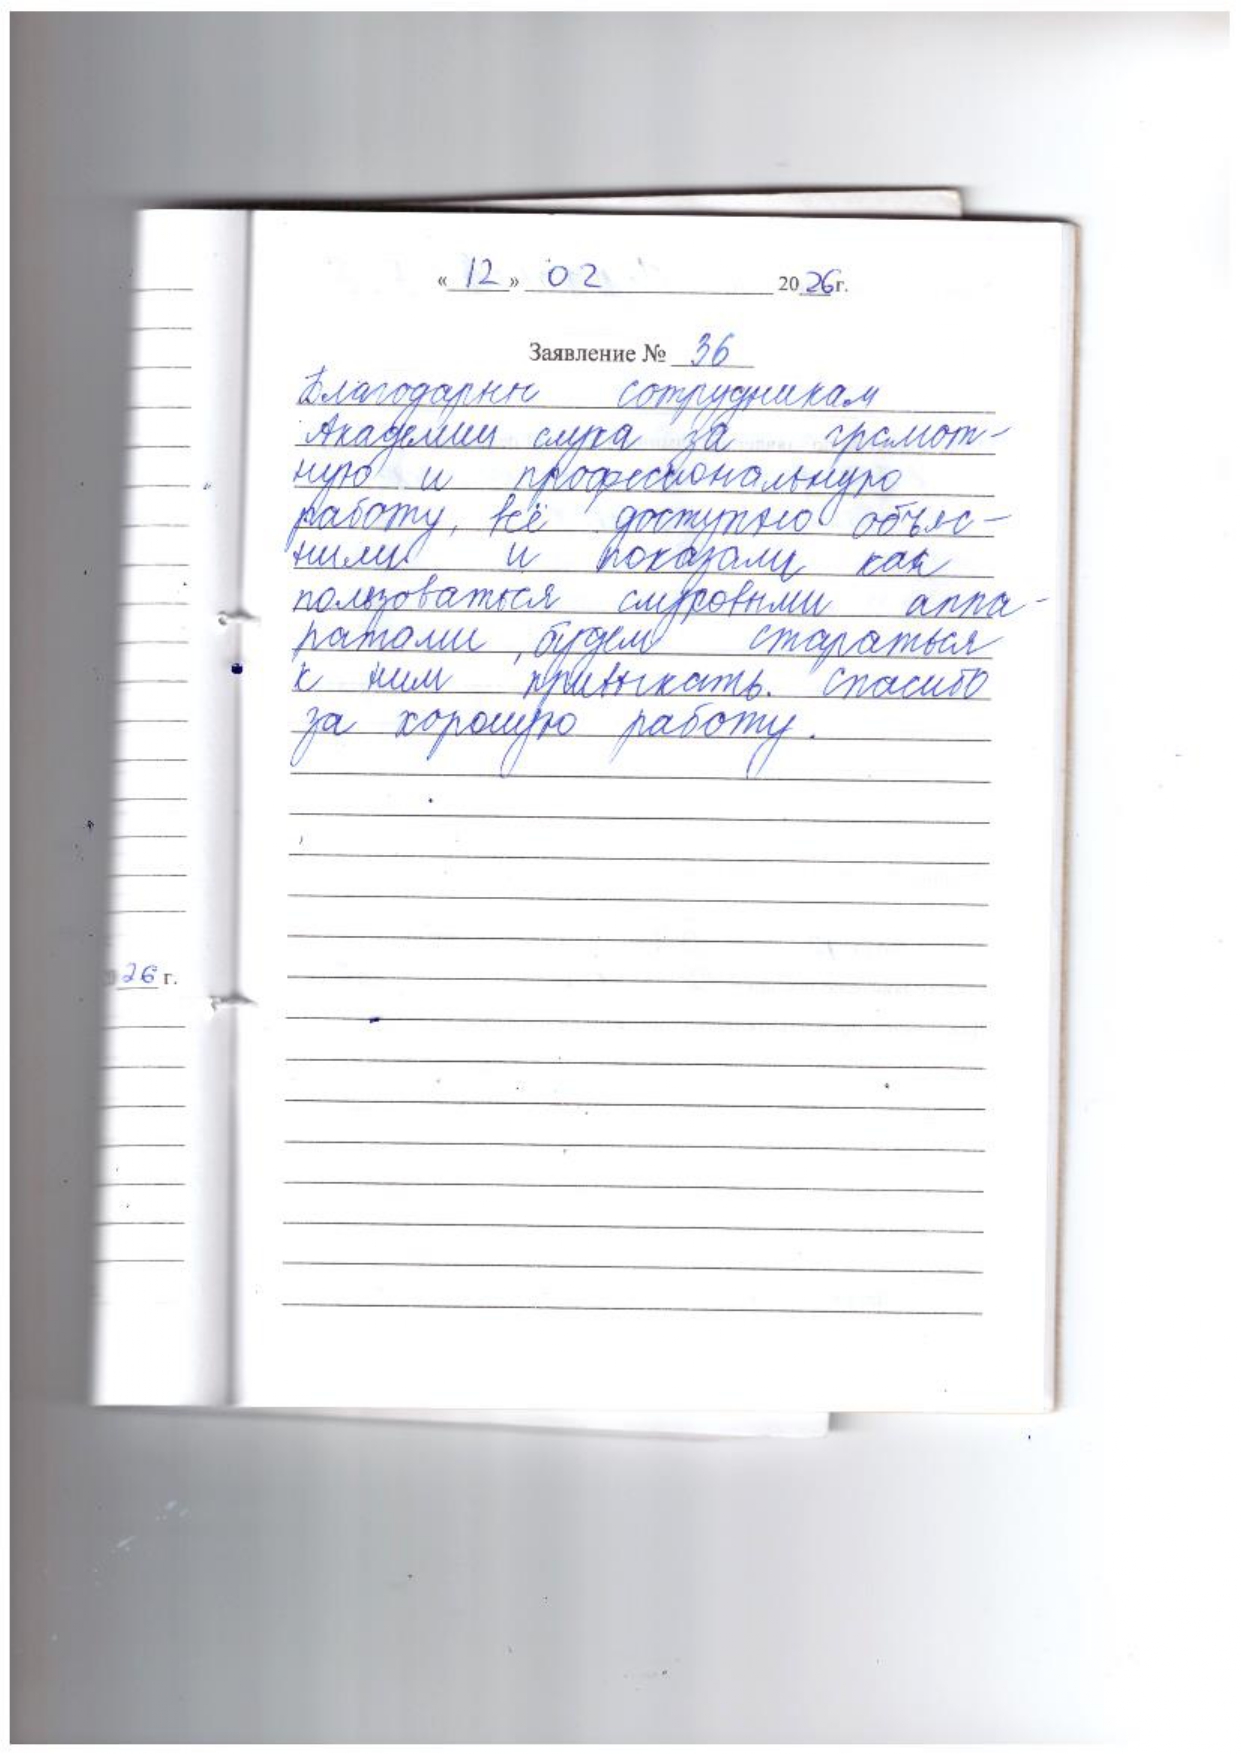 « 12 » 02 2026 г.
Заявление № 36
Благодарны сотрудникам
Академии слуха за грамот-
ную и профессиональную
работу, всё доступно объяс-
нили и показали как
пользоваться слуховыми аппа-
ратами, будем стараться
к ним привыкать. Спасибо
за хорошую работу.
26 г.